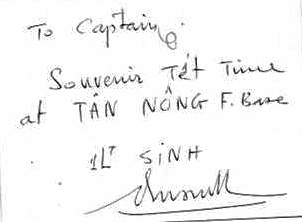 To Captain.
Souvenir Tết Time
at TÂN NÔNG F. Base
1LT SINH